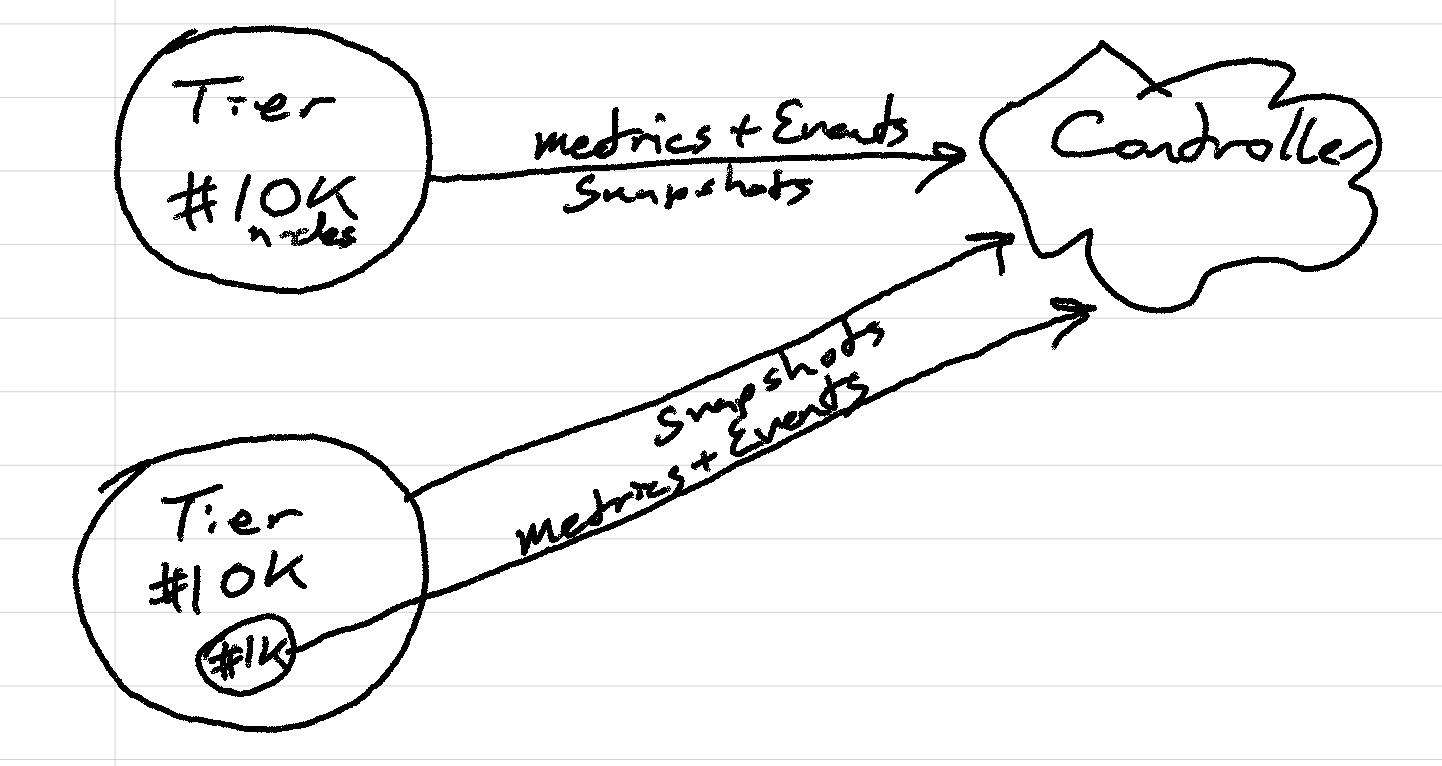 Tier
#10K
nodes
metrics + Events
Snapshots
Controller
Snapshots
metrics + Events
Tier
#10K
#1K